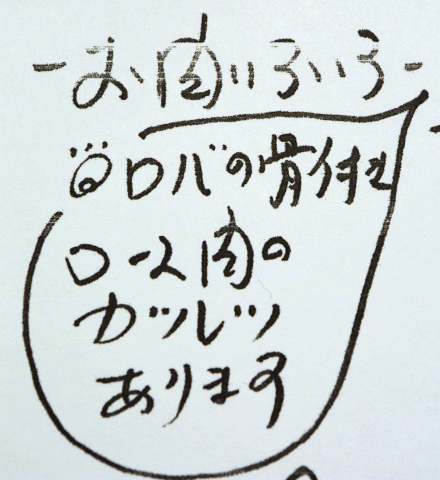 -お肉いろいろ-
ロバの骨付き
ロース肉の
カツレツ
あります